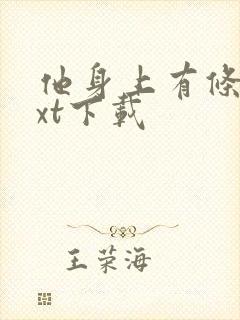 他身上有條
xt下載
王荣海